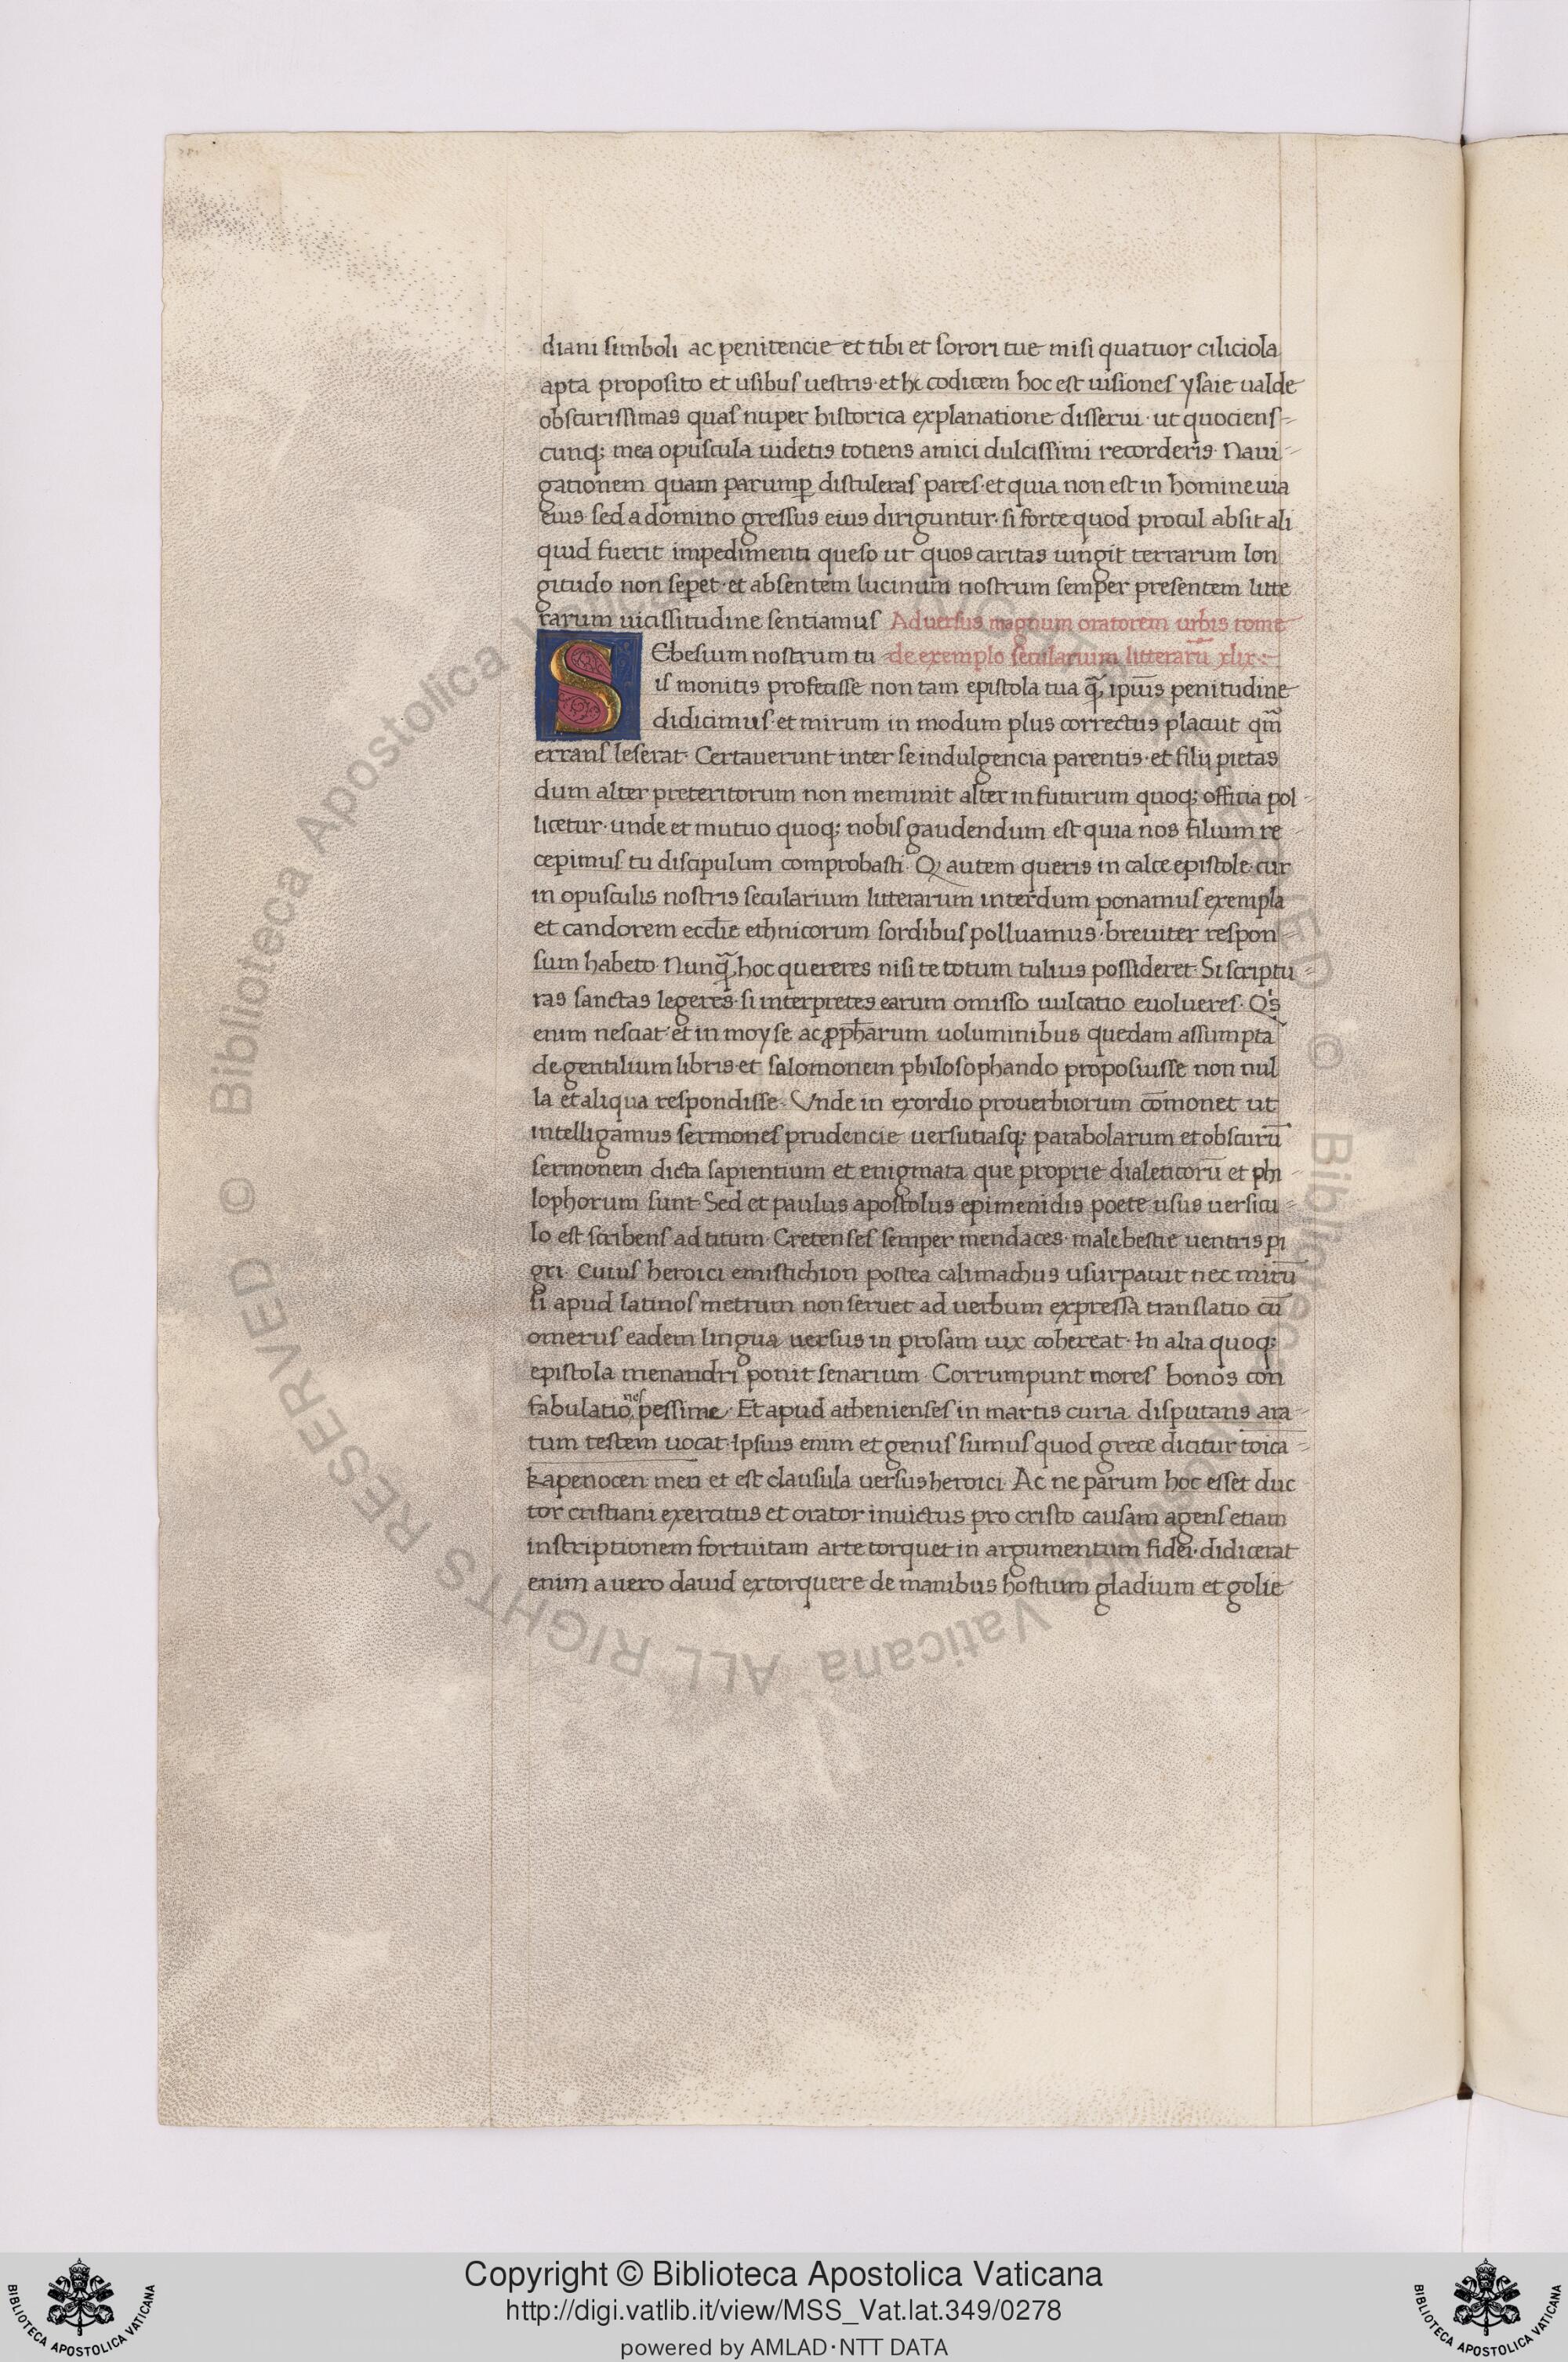 diani simboli ac penitencie et tibi et sorori tue misi quatuor ciliciola
apta proposito et usibus uestris·et hc codicem hoc est uisiones ysaie ualde
obscurissimas quas nuper historica explanatione disserui· ut quociens-
cunq; mea opuscula uidetis totiens amici dulcissimi recorderis· Naui-
gationem quam parump̲ distuleras pares·et quia non est in homine uia
eius sed a domino gressus eius diriguntur·si forte quod procul absit ali
quid fuerit impedimenti queso ut quos caritas iungit terrarum lon
gitudo non sepet·et absentem lucinum nostrum semper presentem litte
rarum uicissitudine sentiamus Aduersus magnum oratorem urbis rome
SEbesium nostrum tu de exemplo secularuim litterarū xlix:-
is monitis profecisse non tam epistola tua q̃, ipiu̅s penitudine
didicimus·et mirum in modum plus correctus placuit qm̃
errans leserat· Certauerunt inter se indulgencia parentis·et filij pietas
dum alter preteritorum non meminit alter in futurum quoq; officia pol-
licetur·unde et mutuo quoq; nobis gaudendum est quia nos filium re-
cepimus tu discipulum comprobasti· Q autem queris in calce epistole·cur
in opusculis nostris secularium litterarum interdum ponamus exempla
et candorem eccl̅ie ethnicorum sordibus polluamus·breuiter respon-
sum habeto· Nunq̃, hoc quereres nisi te totum tulius possideret· Si scriptu-
ras sanctas legeres·si interpretes earum omisso uulcatio euolueres· Qi̇s
enim nesciat·et in moyse ac p̲ph̅arum uoluminibus quedam assumpta
de gentilium libris·et salomonem philosophando proposuisse non nul
la et aliqua respondisse· Vnde in exordio prouerbiorum co̅monet ut
intelligamus sermones prudencie uersutiasq; parabolarum et obscurū
sermonem dicta sapientium et enigmata que proprie dialeticorū et phi-
lophorum sunt· Sed et paulus apostolus epimenidis poete usus uersicu-
lo est scribens ad titum· Cretenses semper mendaces·male bestie uentris pi
gri· Cuius heroici emistichion postea calimachus usurpauit nec mirū
si apud latinos metrum non seruet ad uerbum expressa translatio cū
omerus eadem lingua uersus in prosam uix cohereat· In alia quoq;
epistola menandri ponit senarium· Corrumpunt mores bonos con
fabulationes pessime· Et apud athenienses in martis curia disputans ara-
tum testem uocat·Ipsius enim et genus sumus quod grece dicitur toica-
kapenocen men et est clausula uersus heroici· Ac ne parum hoc esset duc
tor cristiani exercitus et orator inuictus pro cristo causam agens etiam
inscriptionem fortuitam arte torquet in argumentum fidei·didicerat
enim a uero dauid extorquere de manibus hostium gladium et golie
Copyright © Biblioteca Apostolica Vaticana
http://digi.vatlib.it/view/MSS_Vat.lat.349/0278
powered by AMLAD·NTT DATA
BIBLIOTECA APOSTOLICA VATICANA
BIBLIOTECA APOSTOLICA VATICANA